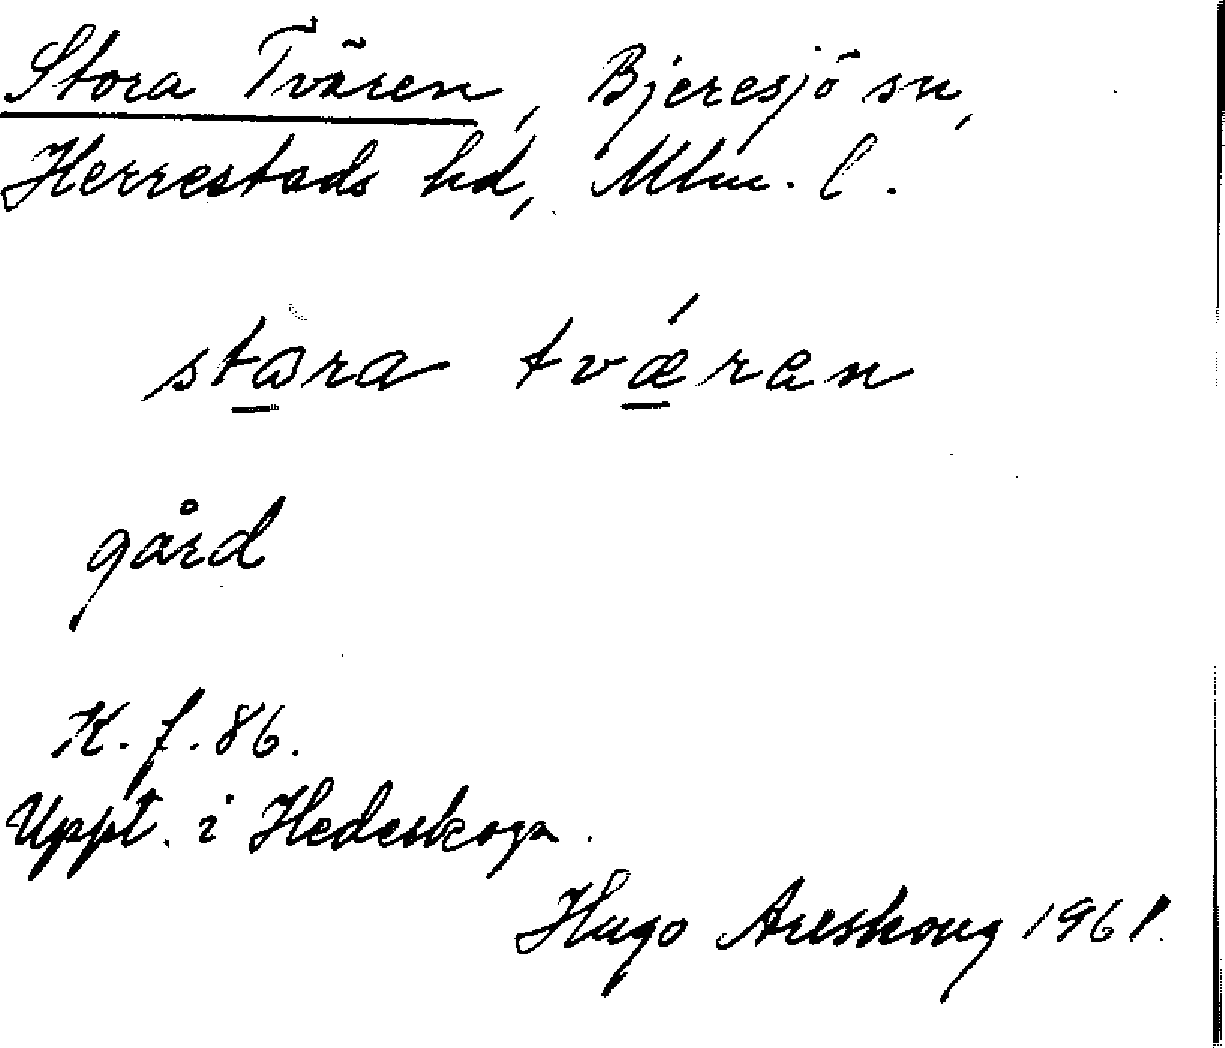 Stora Tvären, Bjeresjö sn,
Herrestads hd, Mlm. l.
stɷra tvǽran
gård
K. f. 86.
Uppt. i Hedeskoga.
Hugo Areskoug 1961.